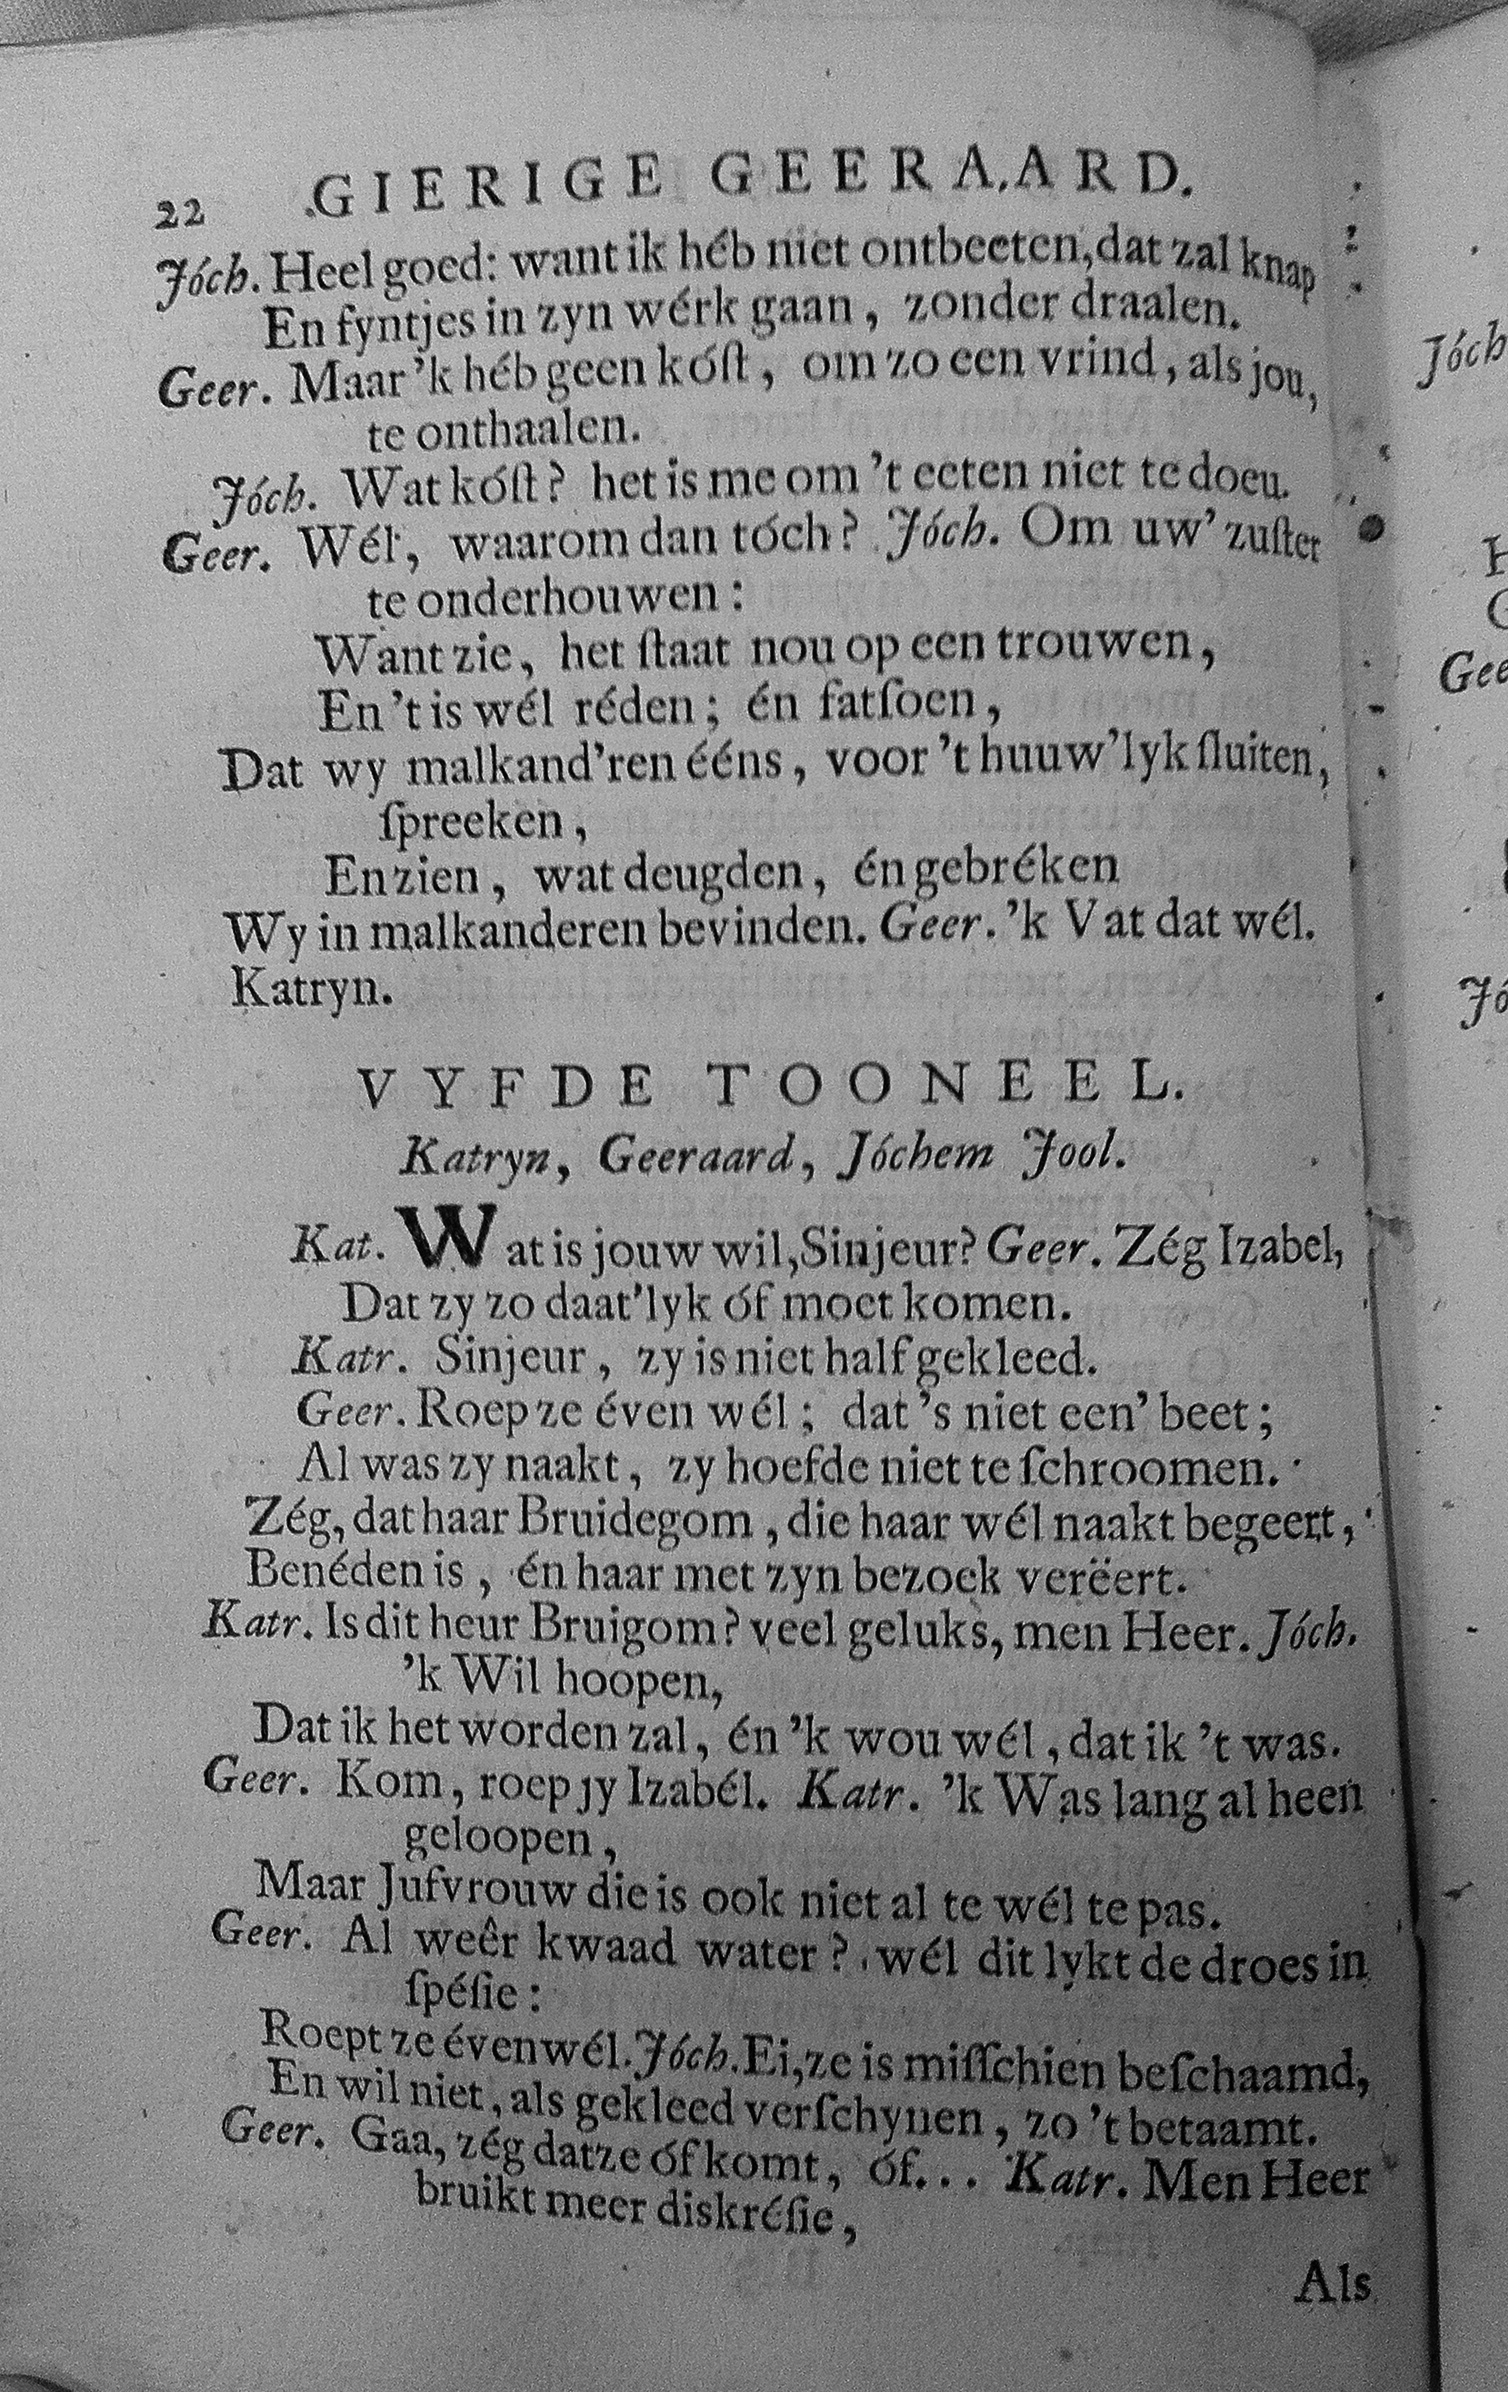 22 GIERIGE GEERAARD.
Jóch. Heel goed: want ik héb niet ontbeeten, dat zal knap
En fyntjes in zyn wérk gaan, zonder draalen.
Geer. Maar 'k héb geen kóſt, om zo een vrind, als jou,
te onthaalen.
Jóch. Wat kóſt? het is me om 't eeten niet te doen.
Geer. Wél, waarom dan tóch? Jóch. Om uw' zuſter
te onderhouwen:
Want zie, het ſtaat nou op een trouwen,
En 't is wél réden; én fatſoen,
Dat wy malkand'ren ééns, voor 't huuw'lyk ſluiten,
ſpreeken,
En zien, wat deugden, én gebréken
Wy in malkanderen bevinden. Geer. 'k Vat dat wél.
Katryn.
VYFDE TOONEEL.
Katryn, Geeraard, Jóchem Jool.
Kat. Wat is jouw wil, Sinjeur? Geer. Zég Izabel,
Dat zy zo daat'lyk óf moet komen.
Katr. Sinjeur, zy is niet half gekleed.
Geer. Roep ze éven wél; dat 's niet een' beet;
Al was zy naakt, zy hoefde niet te ſchroomen.
Zég, dat haar Bruidegom, die haar wél naakt begeert,
Benéden is, én haar met zyn bezoek verëert.
Katr. Is dit heur Bruigom? veel geluks, men Heer. Jóch.
'k Wil hoopen,
Dat ik het worden zal, én 'k wou wél, dat ik 't was.
Geer. Kom, roep jy Izabél. Katr. 'k Was lang al heen
geloopen,
Maar Jufvrouw die is ook niet al te wél te pas.
Geer. Al weêr kwaad water? wél dit lykt de droes in
ſpéſie:
Roept ze évenwél. Jóch. Ei, ze is miſſchien beſchaamd,
En wil niet, als gekleed verſchynen, zo 't betaamt.
Geer. Gaa, zég datze óf komt, óf... Katr. Men Heer
bruikt meer diskréſie,
Als
Jóch
Gee